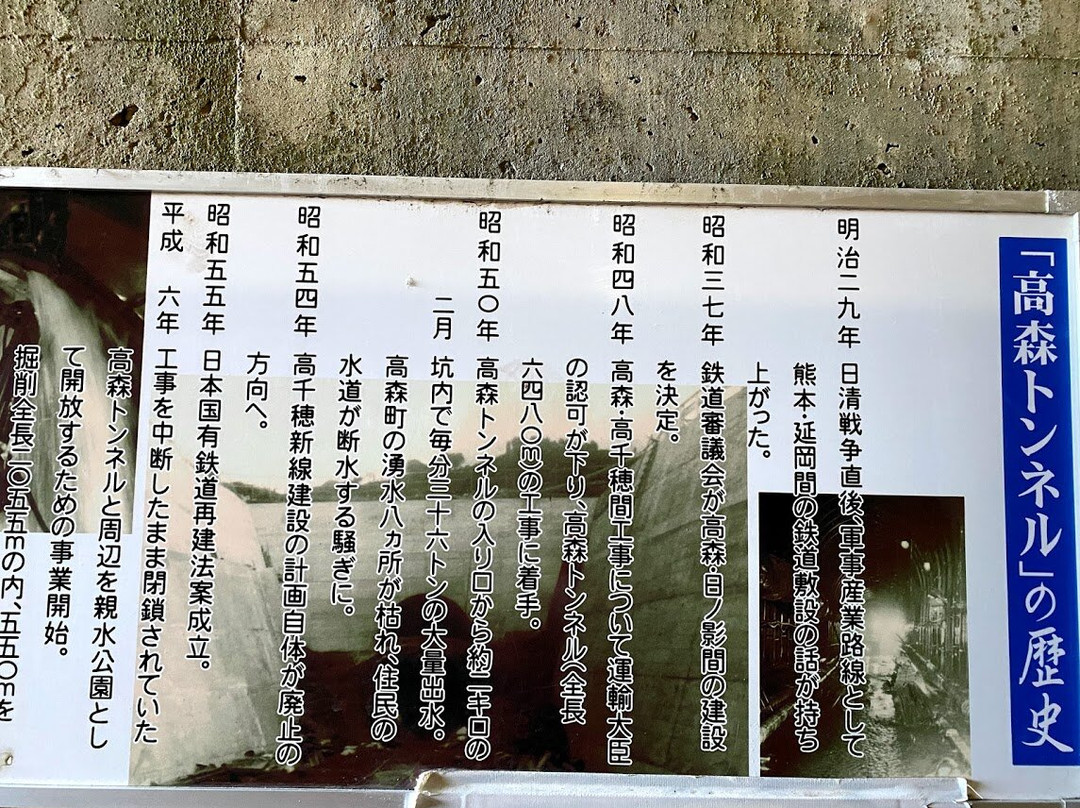 「高森トンネル」の歴史
明治二九年 日清戦争直後、軍事産業路線として
熊本・延岡間の鉄道敷設の話が持ち
上がった。
昭和三七年 鉄道審議会が高森・日ノ影間の建設
を決定。
昭和四八年 高森・高千穂間工事について運輸大臣
の認可が下り、高森トンネル(全長
六四八〇m)の工事に着手。
昭和五〇年 高森トンネルの入り口から約二キロの
二月 坑内で毎分三十六トンの大量出水。
高森町の湧水八ヵ所が枯れ、住民の
水道が断水する騒ぎに。
昭和五四年 高千穂新線建設の計画自体が廃止の
方向へ。
昭和五五年 日本国有鉄道再建法案成立。
平成 六年 工事を中断したまま閉鎖されていた
高森トンネルと周辺を親水公園とし
て開放するための事業開始。
掘削全長二〇五五mの内、五五〇mを